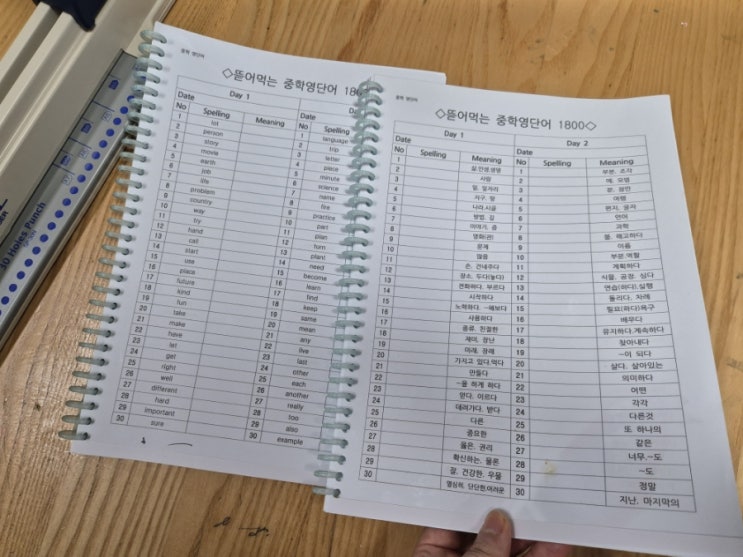 중학 영단어
◇뜯어먹는 중학영단어 180
Date Day 1 Date
No Spelling Meaning No Spelling
1 lot 1 language
2 person 2 trip
3 story 3 letter
4 movie 4 place
5 earth 5 minute
6 job 6 science
7 life 7 name
8 problem 8 fire
9 country 9 practice
10 way 10 part
11 try 11 plan
12 hand 12 turn
13 call 13 plant
14 start 14 need
15 use 15 become
16 place 16 learn
17 future 17 find
18 kind 18 keep
19 fun 19 same
20 take 20 mean
21 make 21 any
22 have 22 live
23 let 23 last
24 get 24 other
25 right 25 each
26 well 26 another
27 different 27 really
28 hard 28 too
29 important 29 also
30 sure 30 example
중학 영단어
◇뜯어먹는 중학영단어 1800◇
Date Day 1 Date Day 2
No Spelling Meaning No Spelling Meaning
1 삶,인생,생명 1 부분, 조각
2 사람 2 예, 모범
3 일, 일거리 3 분, 잠깐
4 지구, 땅 4 여행
5 나라,시골 5 편지, 글자
6 방법, 길 6 언어
7 이야기, 층 7 과학
8 영화(관) 8 불, 해고하다
9 문제 9 이름
10 많음 10 부분,역할
11 손, 건네주다 11 계획하다
12 장소, 두다(놓다) 12 식물, 공장, 심다
13 전화하다, 부르다 13 연습(하다),실행
14 시작하다 14 돌리다, 차례
15 노력하다, ~해보다 15 필요(하다)욕구
16 사용하다 16 배우다
17 종류, 친절한 17 유지하다,계속하다
18 재미, 장난 18 찾아내다
19 미래, 장래 19 ~이 되다
20 가지고 있다,먹다 20 살다, 살아있는
21 만들다 21 의미하다
22 ~을 하게 하다 22 어떤
23 얻다, 이르다 23 각각
24 데려가다, 받다 24 다른것
25 다른 25 또 하나의
26 중요한 26 같은
27 옳은, 권리 27 너무,~도
28 확신하는, 물론 28 ~도
29 잘, 건강한, 우물 29 정말
30 열심히, 단단한,어려운 30 지난, 마지막의
30 Holes Punch